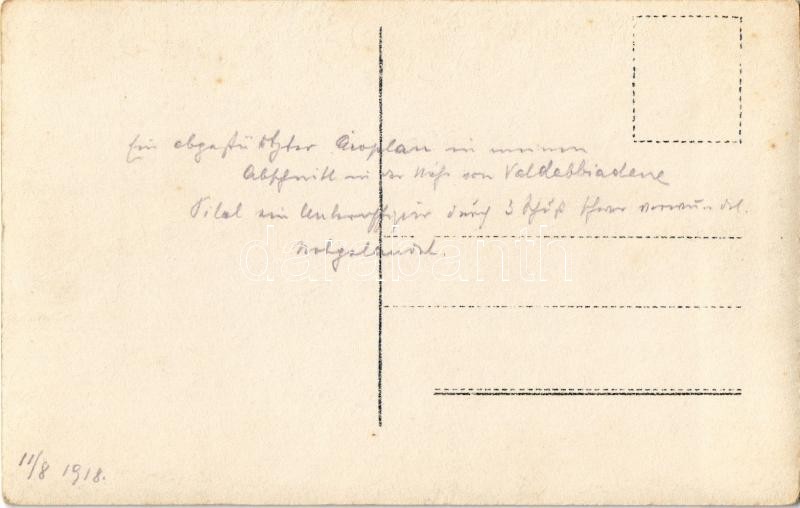 Ein abgestürtzter Äroplan in meinem
Abschnitt in der Nähe von Valdobbiadene
Pilot ein Unteroffizier durch 3 Schuß schwer verwundet.
notgelandet.
darabanth
11/8 1918.